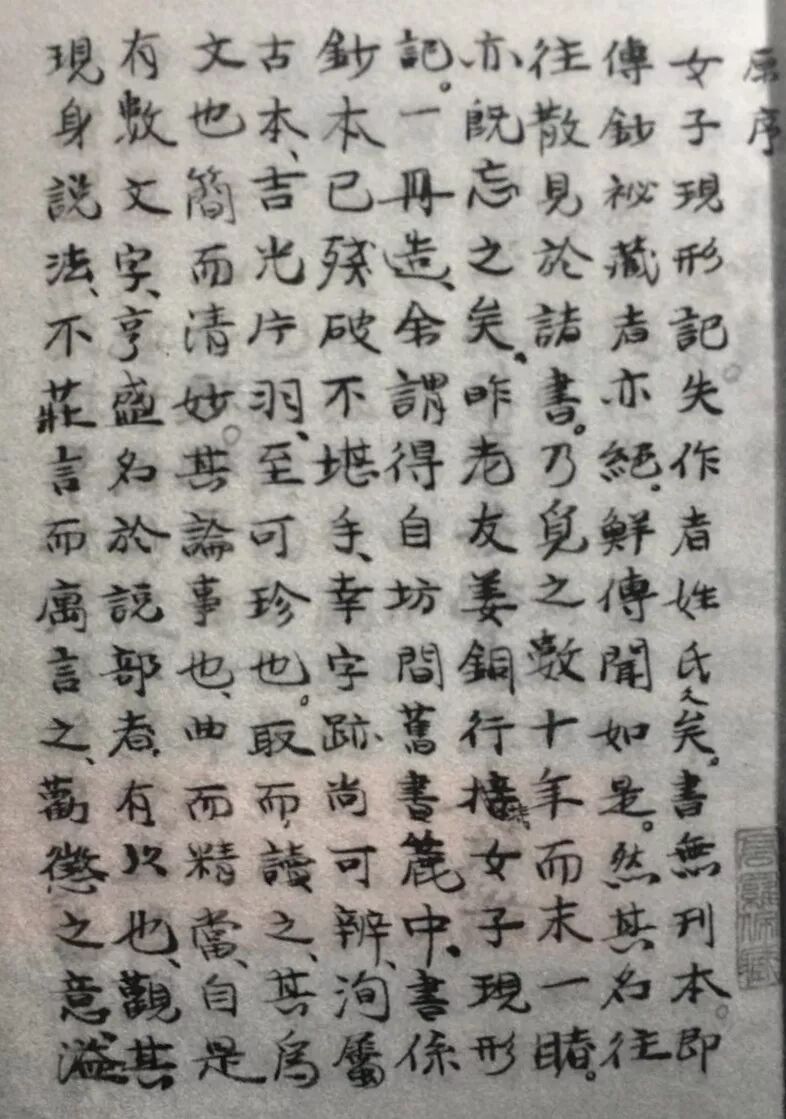 原序
女子現形記。失作者姓氏久矣。書無刊本。即
傳鈔祕藏者亦絕。鮮傳聞如是。然其名往
往散見於諸書。乃覓之數十年而未一睹。
亦既忘之矣。昨老友姜銅行攜女子現形
記。一冊造、余謂得自坊間舊書簏中。書係
鈔本已殘破不堪手、幸字跡尚可辨、洵屬
古本、吉光片羽、至可珍也。取而讀之、其為
文也簡而清妙。其論事也、曲而精當、自是
有數文字、享盛名於說部者、有以也、觀其
現身說法、不莊言而寓言之、勸懲之意、溢